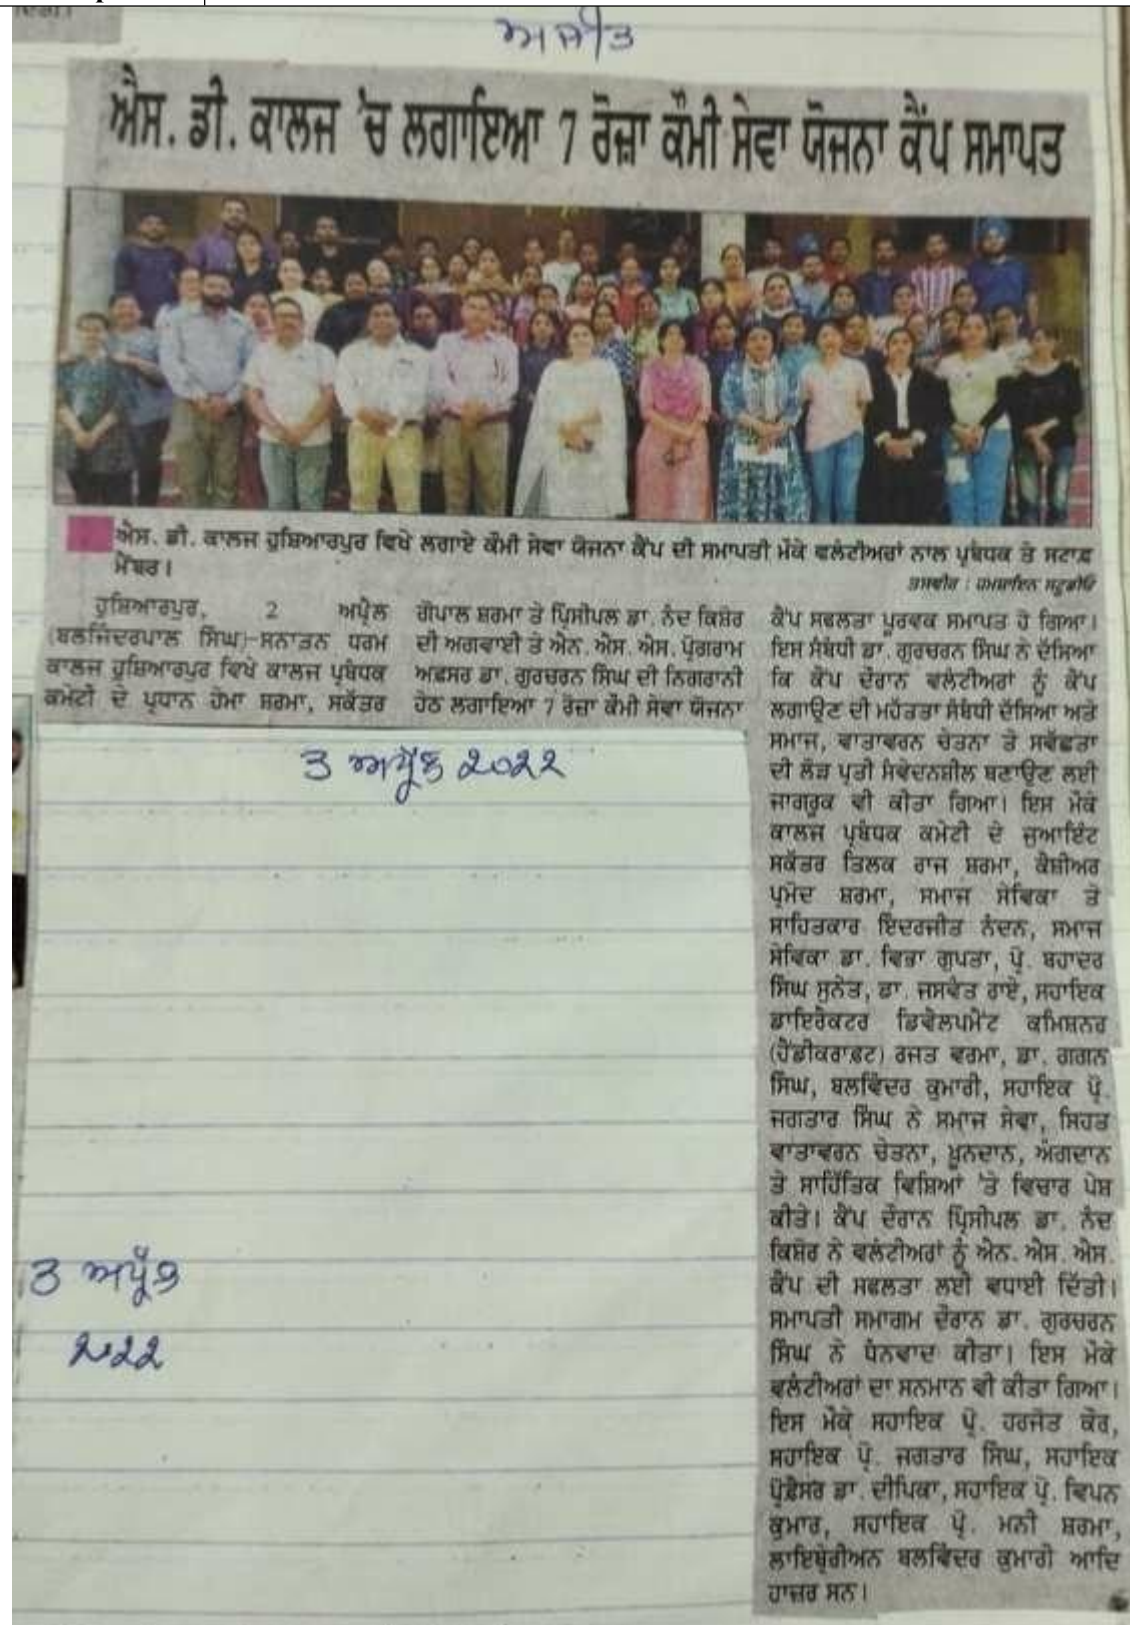 ਅਜੀਤ
ਐਸ. ਡੀ. ਕਾਲਜ 'ਚ ਲਗਾਇਆ 7 ਰੋਜ਼ਾ ਕੌਮੀ ਸੇਵਾ ਯੋਜਨਾ ਕੈਂਪ ਸਮਾਪਤ
ਐਸ. ਡੀ. ਕਾਲਜ ਹੁਸ਼ਿਆਰਪੁਰ ਵਿਖੇ ਲਗਾਏ ਕੌਮੀ ਸੇਵਾ ਯੋਜਨਾ ਕੈਂਪ ਦੀ ਸਮਾਪਤੀ ਮੌਕੇ ਵਲੰਟੀਅਰਾਂ ਨਾਲ ਪ੍ਰਬੰਧਕ ਤੇ ਸਟਾਫ਼
ਮੈਂਬਰ।
ਤਸਵੀਰ :
ਹੁਸ਼ਿਆਰਪੁਰ, 2 ਅਪ੍ਰੈਲ
(ਬਲਜਿੰਦਰਪਾਲ ਸਿੰਘ)-ਸਨਾਤਨ ਧਰਮ
ਕਾਲਜ ਹੁਸ਼ਿਆਰਪੁਰ ਵਿਖੇ ਕਾਲਜ ਪ੍ਰਬੰਧਕ
ਕਮੇਟੀ ਦੇ ਪ੍ਰਧਾਨ ਹੇਮਾ ਸ਼ਰਮਾ, ਸਕੱਤਰ
ਗੋਪਾਲ ਸ਼ਰਮਾ ਤੇ ਪ੍ਰਿੰਸੀਪਲ ਡਾ. ਨੰਦ ਕਿਸ਼ੋਰ
ਦੀ ਅਗਵਾਈ ਤੇ ਐਨ. ਐਸ. ਐਸ. ਪ੍ਰੋਗਰਾਮ
ਅਫ਼ਸਰ ਡਾ. ਗੁਰਚਰਨ ਸਿੰਘ ਦੀ ਨਿਗਰਾਨੀ
ਹੇਠ ਲਗਾਇਆ 7 ਰੋਜ਼ਾ ਕੌਮੀ ਸੇਵਾ ਯੋਜਨਾ
ਕੈਂਪ ਸਫਲਤਾ ਪੂਰਵਕ ਸਮਾਪਤ ਹੋ ਗਿਆ।
ਇਸ ਸੰਬੰਧੀ ਡਾ. ਗੁਰਚਰਨ ਸਿੰਘ ਨੇ ਦੱਸਿਆ
ਕਿ ਕੈਂਪ ਦੌਰਾਨ ਵਲੰਟੀਅਰਾਂ ਨੂੰ ਕੈਂਪ
ਲਗਾਉਣ ਦੀ ਮਹੱਤਤਾ ਸੰਬੰਧੀ ਦੱਸਿਆ ਅਤੇ
ਸਮਾਜ, ਵਾਤਾਵਰਨ ਚੇਤਨਾ ਤੇ ਸਵੱਛਤਾ
ਦੀ ਲੋੜ ਪ੍ਰਤੀ ਸੰਵੇਦਨਸ਼ੀਲ ਬਣਾਉਣ ਲਈ
ਜਾਗਰੂਕ ਵੀ ਕੀਤਾ ਗਿਆ। ਇਸ ਮੌਕੇ
ਕਾਲਜ ਪ੍ਰਬੰਧਕ ਕਮੇਟੀ ਦੇ ਜੁਆਇੰਟ
ਸਕੱਤਰ ਤਿਲਕ ਰਾਜ ਸ਼ਰਮਾ, ਕੈਸ਼ੀਅਰ
ਪ੍ਰਮੋਦ ਸ਼ਰਮਾ, ਸਮਾਜ ਸੇਵਿਕਾ ਤੇ
ਸਾਹਿਤਕਾਰ ਇੰਦਰਜੀਤ ਨੰਦਨ, ਸਮਾਜ
ਸੇਵਿਕਾ ਡਾ. ਵਿਭਾ ਗੁਪਤਾ, ਪ੍ਰੋ. ਬਹਾਦਰ
ਸਿੰਘ ਸੁਨੇਤ, ਡਾ. ਜਸਵੰਤ ਰਾਏ, ਸਹਾਇਕ
ਡਾਇਰੈਕਟਰ ਡਿਵੈਲਪਮੈਂਟ ਕਮਿਸ਼ਨਰ
(ਹੈਂਡੀਕਰਾਫ਼ਟ) ਰਜਤ ਵਰਮਾ, ਡਾ. ਗਗਨ
ਸਿੰਘ, ਬਲਵਿੰਦਰ ਕੁਮਾਰੀ, ਸਹਾਇਕ ਪ੍ਰੋ.
ਜਗਤਾਰ ਸਿੰਘ ਨੇ ਸਮਾਜ ਸੇਵਾ, ਸਿਹਤ
ਵਾਤਾਵਰਨ ਚੇਤਨਾ, ਖ਼ੂਨਦਾਨ, ਅੰਗਦਾਨ
ਤੇ ਸਾਹਿੱਤਿਕ ਵਿਸ਼ਿਆਂ 'ਤੇ ਵਿਚਾਰ ਪੇਸ਼
ਕੀਤੇ। ਕੈਂਪ ਦੌਰਾਨ ਪ੍ਰਿੰਸੀਪਲ ਡਾ. ਨੰਦ
ਕਿਸ਼ੋਰ ਨੇ ਵਲੰਟੀਅਰਾਂ ਨੂੰ ਐਨ. ਐਸ. ਐਸ.
ਕੈਂਪ ਦੀ ਸਫਲਤਾ ਲਈ ਵਧਾਈ ਦਿੱਤੀ।
ਸਮਾਪਤੀ ਸਮਾਗਮ ਦੌਰਾਨ ਡਾ. ਗੁਰਚਰਨ
ਸਿੰਘ ਨੇ ਧੰਨਵਾਦ ਕੀਤਾ। ਇਸ ਮੌਕੇ
ਵਲੰਟੀਅਰਾਂ ਦਾ ਸਨਮਾਨ ਵੀ ਕੀਤਾ ਗਿਆ।
ਇਸ ਮੌਕੇ ਸਹਾਇਕ ਪ੍ਰੋ. ਹਰਜੋਤ ਕੌਰ,
ਸਹਾਇਕ ਪ੍ਰੋ. ਜਗਤਾਰ ਸਿੰਘ, ਸਹਾਇਕ
ਪ੍ਰੋਫ਼ੈਸਰ ਡਾ. ਦੀਪਿਕਾ, ਸਹਾਇਕ ਪ੍ਰੋ. ਵਿਪਨ
ਕੁਮਾਰ, ਸਹਾਇਕ ਪ੍ਰੋ. ਮਨੀ ਸ਼ਰਮਾ,
ਲਾਇਬ੍ਰੇਰੀਅਨ ਬਲਵਿੰਦਰ ਕੁਮਾਰੀ ਆਦਿ
ਹਾਜ਼ਰ ਸਨ।
3 ਅਪ੍ਰੈਲ 2022
3 ਅਪ੍ਰੈਲ
2022